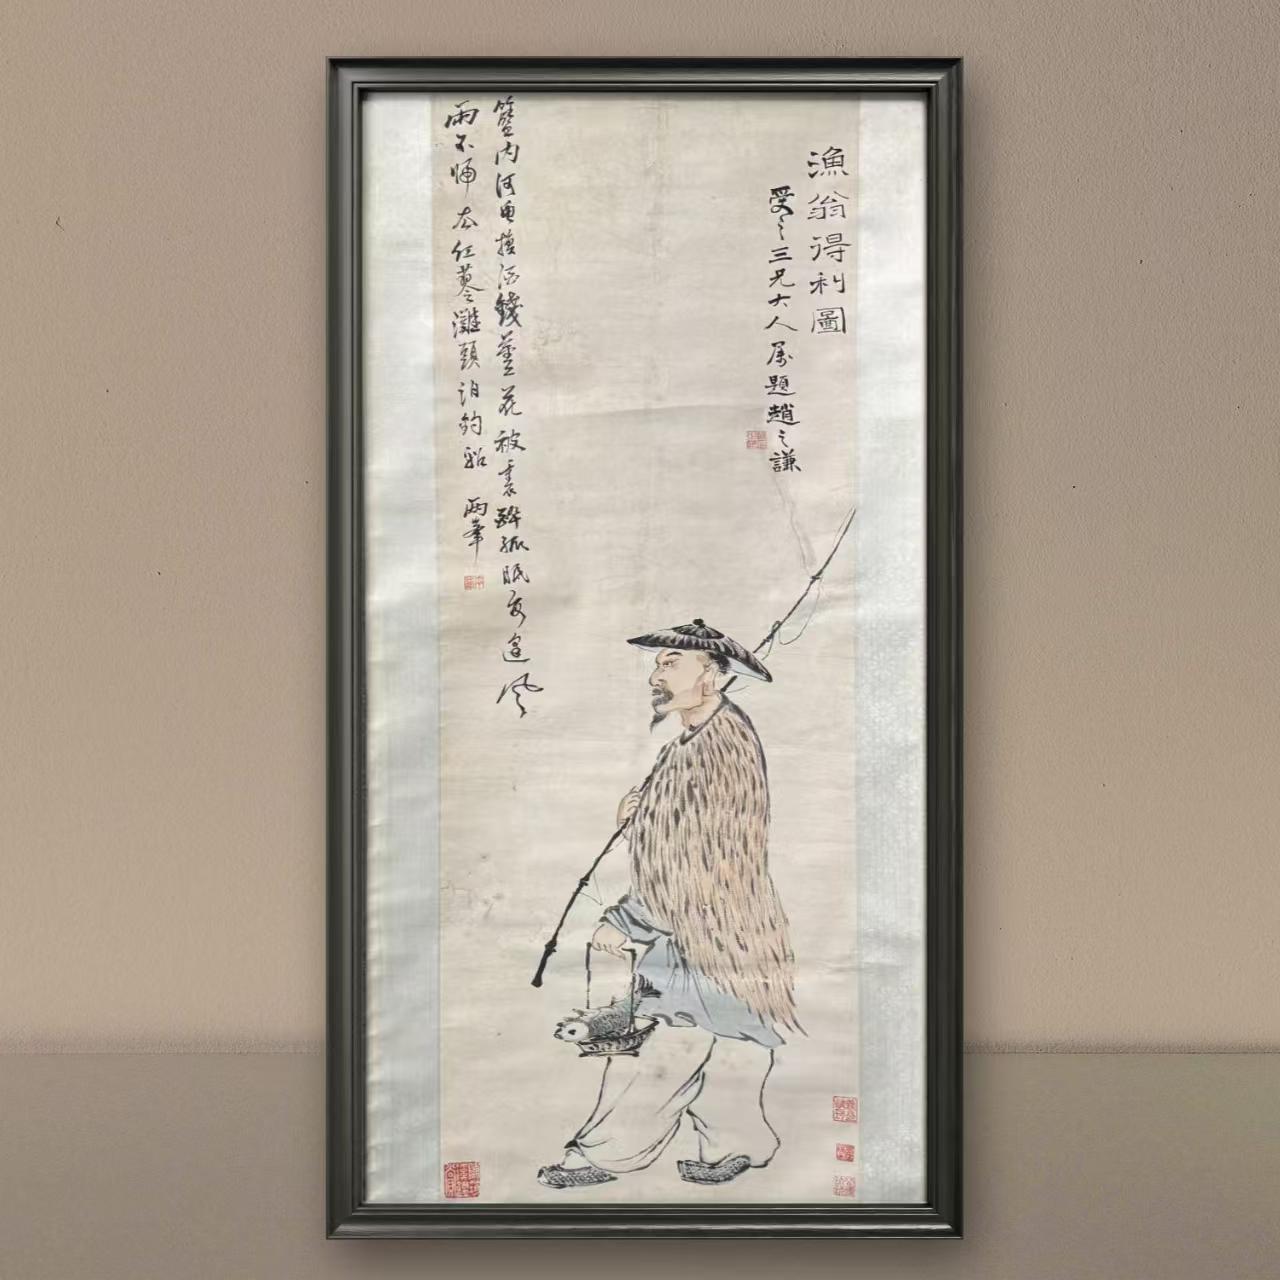 漁翁得利圖
受之三兄大人屬題趙之謙
籃內河魚換酒錢蘆花被裏醉孤眠每逢風
雨不歸去紅蓼灘頭泊釣船
兩峯